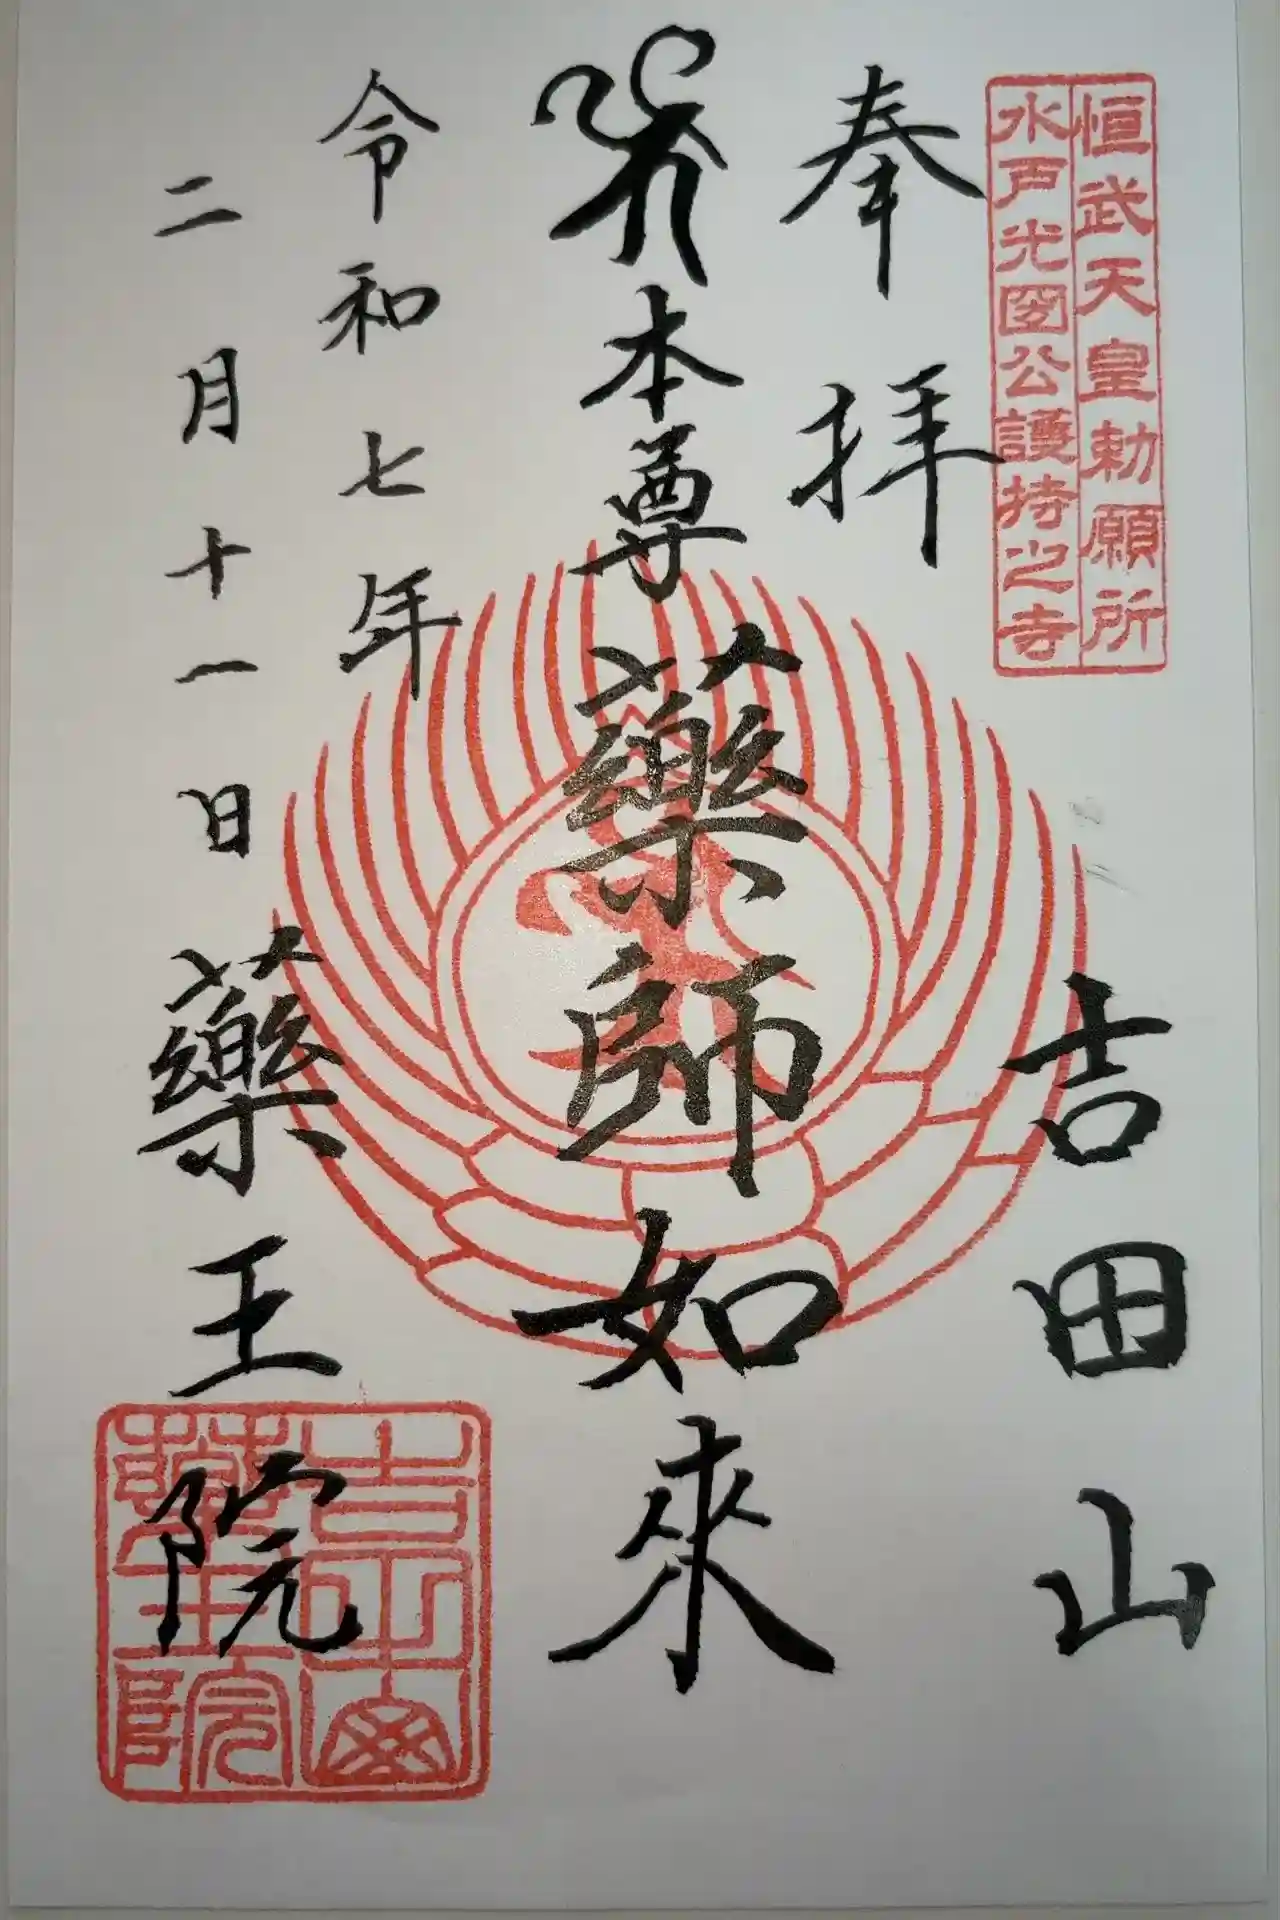 恒武天皇勅願所
水戸光圀公護持之寺
奉拝
吉田山
本尊薬師如來
令和七年
二月十一日
藥王院
藥王院